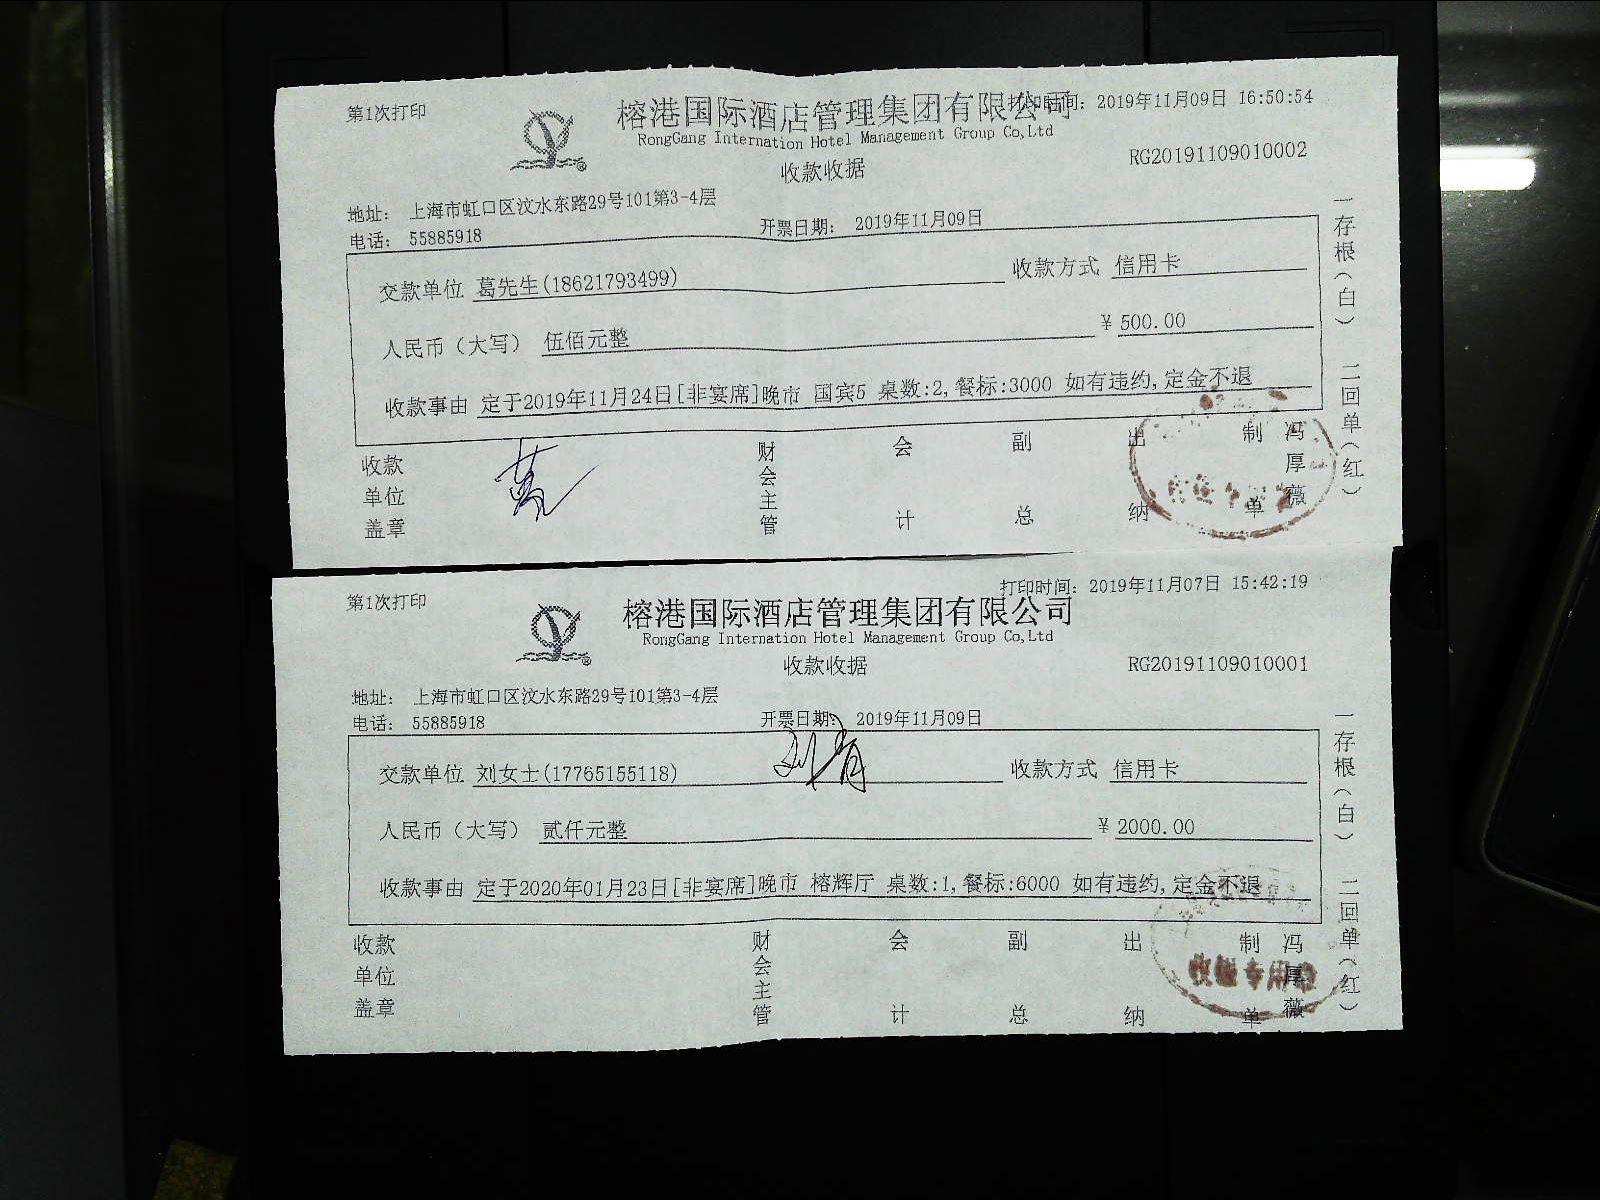 第1次打印
榕港国际酒店管理集团有限公司 打印时间: 2019年11月09日 16:50:54
RongGang Internation Hotel Management Group Co,Ltd
收款收据 RG20191109010002
地址: 上海市虹口区汶水东路29号101第3-4层
电话: 55885918 开票日期: 2019年11月09日
交款单位 葛先生(18621793499) 收款方式 信用卡
人民币（大写） 伍佰元整 ¥ 500.00
收款事由 定于2019年11月24日[非宴席]晚市 国宾5 桌数:2,餐标:3000 如有违约,定金不退
收款单位盖章 葛 财会主管 会计 副总 出纳 制单 冯厚薇
一存根（白） 二回单（红）
第1次打印 打印时间: 2019年11月07日 15:42:19
榕港国际酒店管理集团有限公司
RongGang Internation Hotel Management Group Co,Ltd
收款收据 RG20191109010001
地址: 上海市虹口区汶水东路29号101第3-4层
电话: 55885918 开票日期: 2019年11月09日
交款单位 刘女士(17765155118) 收款方式 信用卡
人民币（大写） 贰仟元整 ¥ 2000.00
收款事由 定于2020年01月23日[非宴席]晚市 榕辉厅 桌数:1,餐标:6000 如有违约,定金不退
收款单位盖章 财会主管 会计 副总 出纳 制单 冯厚薇
一存根（白） 二回单（红）